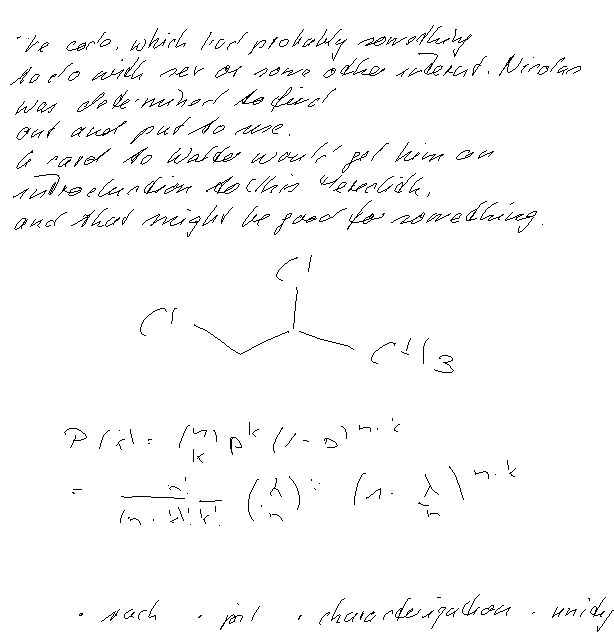 code, which had probably something
to do with sex or some other interest. Nicolas
was determined to find
out and put to use.
A card to Walter would get him an
introduction to this Meredith,
and that might be good for something.
Cl
Cl
CH3
P(k) = (n k) p^k (1-p)^n-k
= n! / (n-k)! k! (λ/n)^k (1-λ/n)^n-k
· each · · characterization · unity